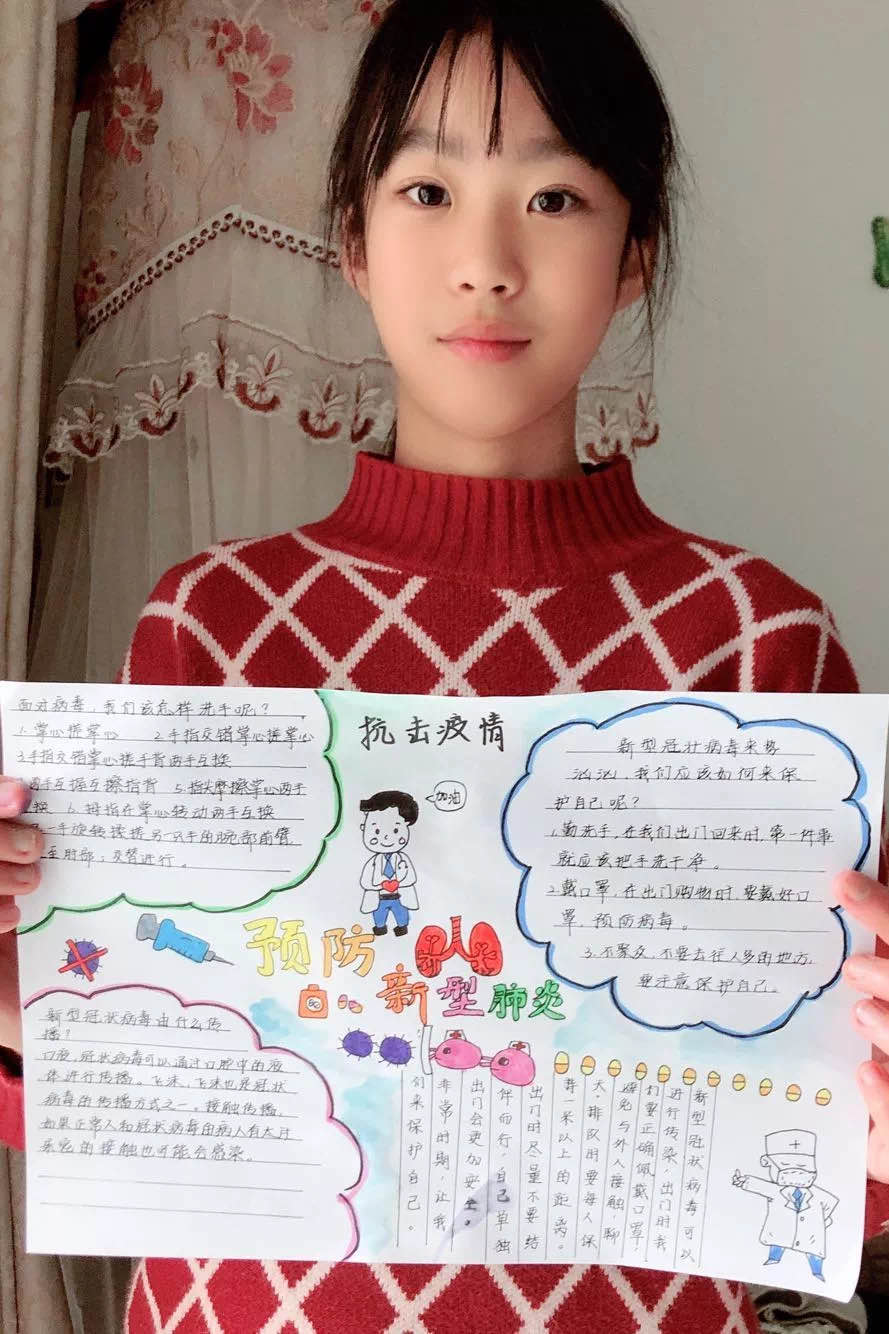 抗击疫情
加油
预防
新型肺炎
面对病毒，我们该怎样洗手呢？
1.掌心搓掌心 2.手指交错掌心搓掌心
3.手指交错掌心搓手背两手互换
两手互握互擦指背 5.指尖摩擦掌心两手
换 6.拇指在掌心转动两手互换
一手旋转揉搓另一只手的腕部前臂
至肘部；交替进行。
新型冠状病毒来势
汹汹，我们应该如何来保
护自己呢？
1.勤洗手，在我们出门回来时，第一件事
就应该把手洗干净。
2.戴口罩，在出门购物时，要戴好口
罩，预防病毒。
3.不聚众，不要去往人多的地方，
要注意保护自己。
新型冠状病毒由什么传
播？
口液，冠状病毒可以通过口腔中的液
体进行传播。飞沫，飞沫也是冠状
病毒的传播方式之一。接触传播，
如果正常人和冠状病毒的病人有大片
的接触也可能会感染。
新型冠状病毒可以
进行传染，出门时我
们要正确佩戴口罩！
避免与外人接触聊
天，排队时要每人保
持一米以上的距离。
出门时尽量不要结
伴而行，自己单独
出门会更加安全。
非常时期，让我
们来保护自己。